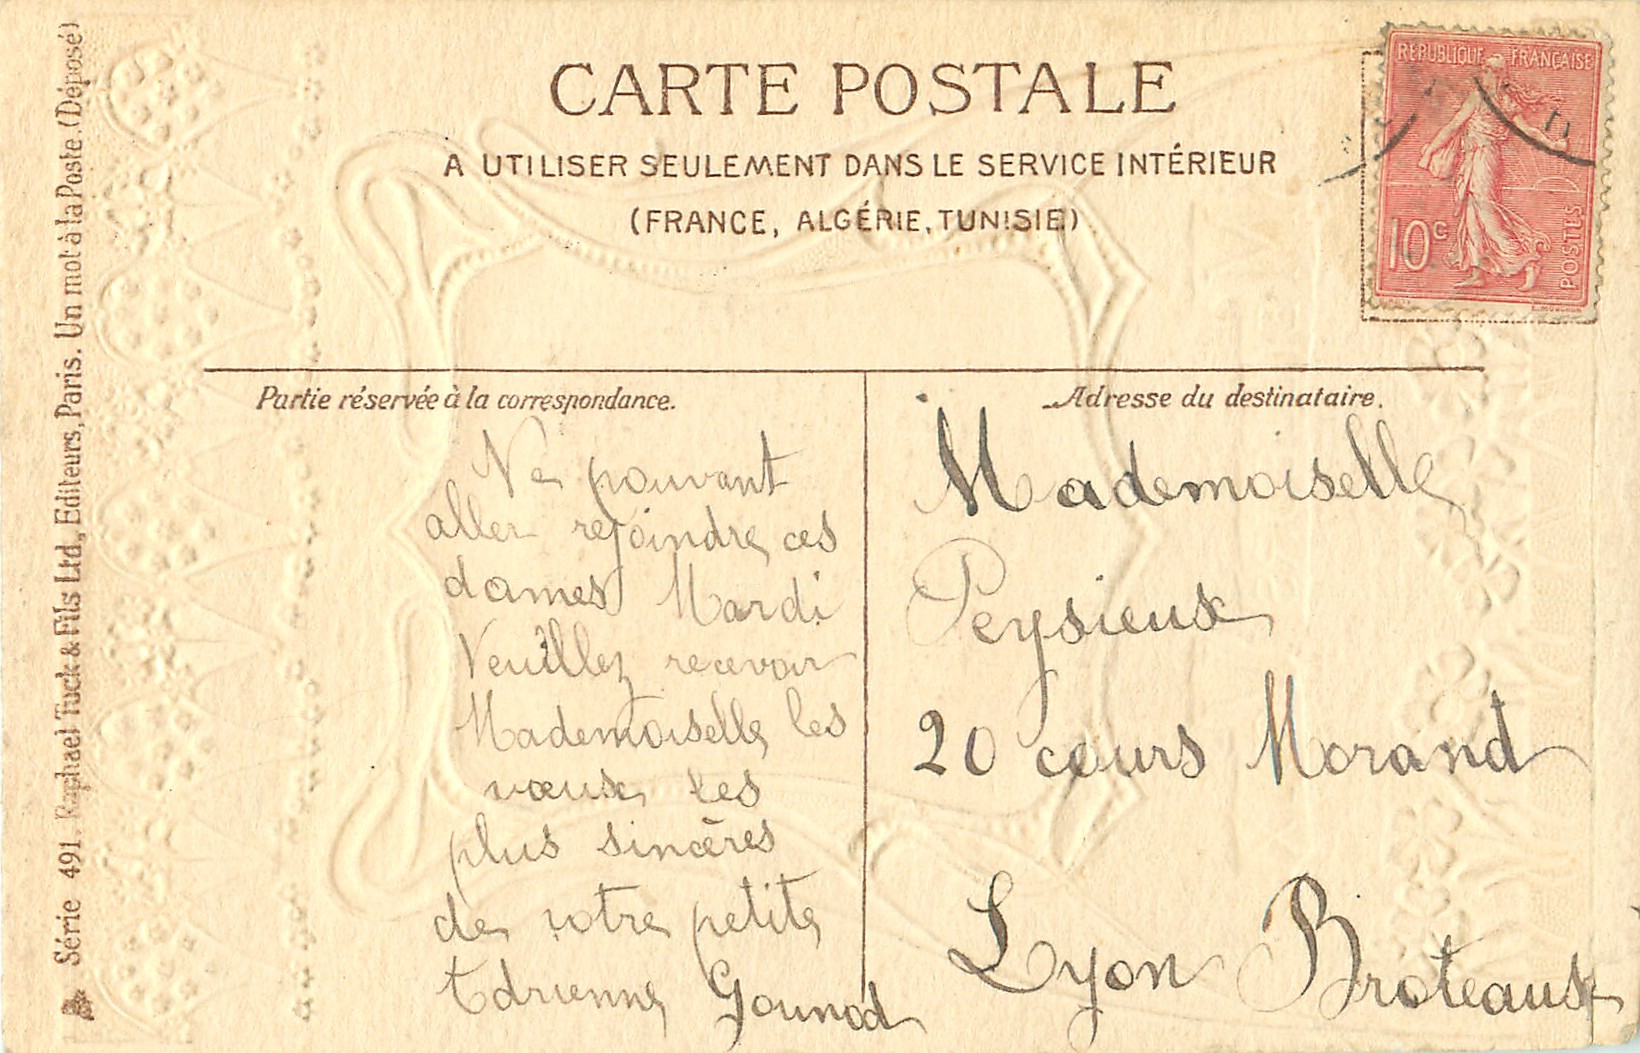 CARTE POSTALE
A UTILISER SEULEMENT DANS LE SERVICE INTÉRIEUR
(FRANCE, ALGÉRIE, TUNISIE)
REPUBLIQUE FRANÇAISE
10c
POSTES
Série 491. Raphael Tuck & Fils Ltd., Editeurs, Paris. Un mot à la Poste. (Déposé)
Partie réservée à la correspondance.
Ne pouvant
aller rejoindre ces
dames Mardi
Veuillez recevoir
Mademoiselle les
vœux les
plus sincères
de votre petite
Adrienne Gounod
Adresse du destinataire.
Mademoiselle
Peysieux
20 cours Morand
Lyon Broteaux